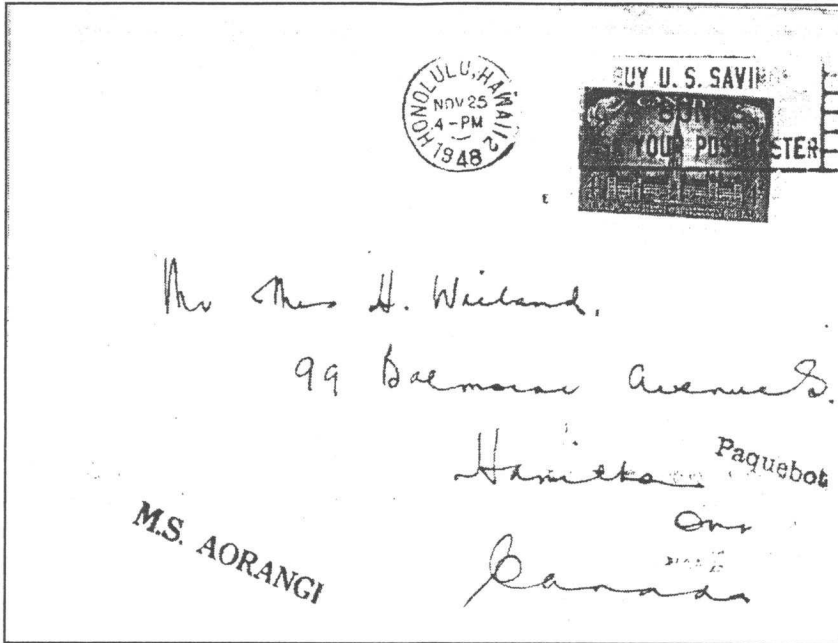 HONOLULU, HAWAII 2
NOV 25
4-PM
1948
BUY U.S. SAVINGS
BONDS
ASK YOUR POSTMASTER
Mr Mrs H. Weiland.
99 Balmoral Avenue S.
Hamilton
Paquebot
Ont
Canada
M.S. AORANGI